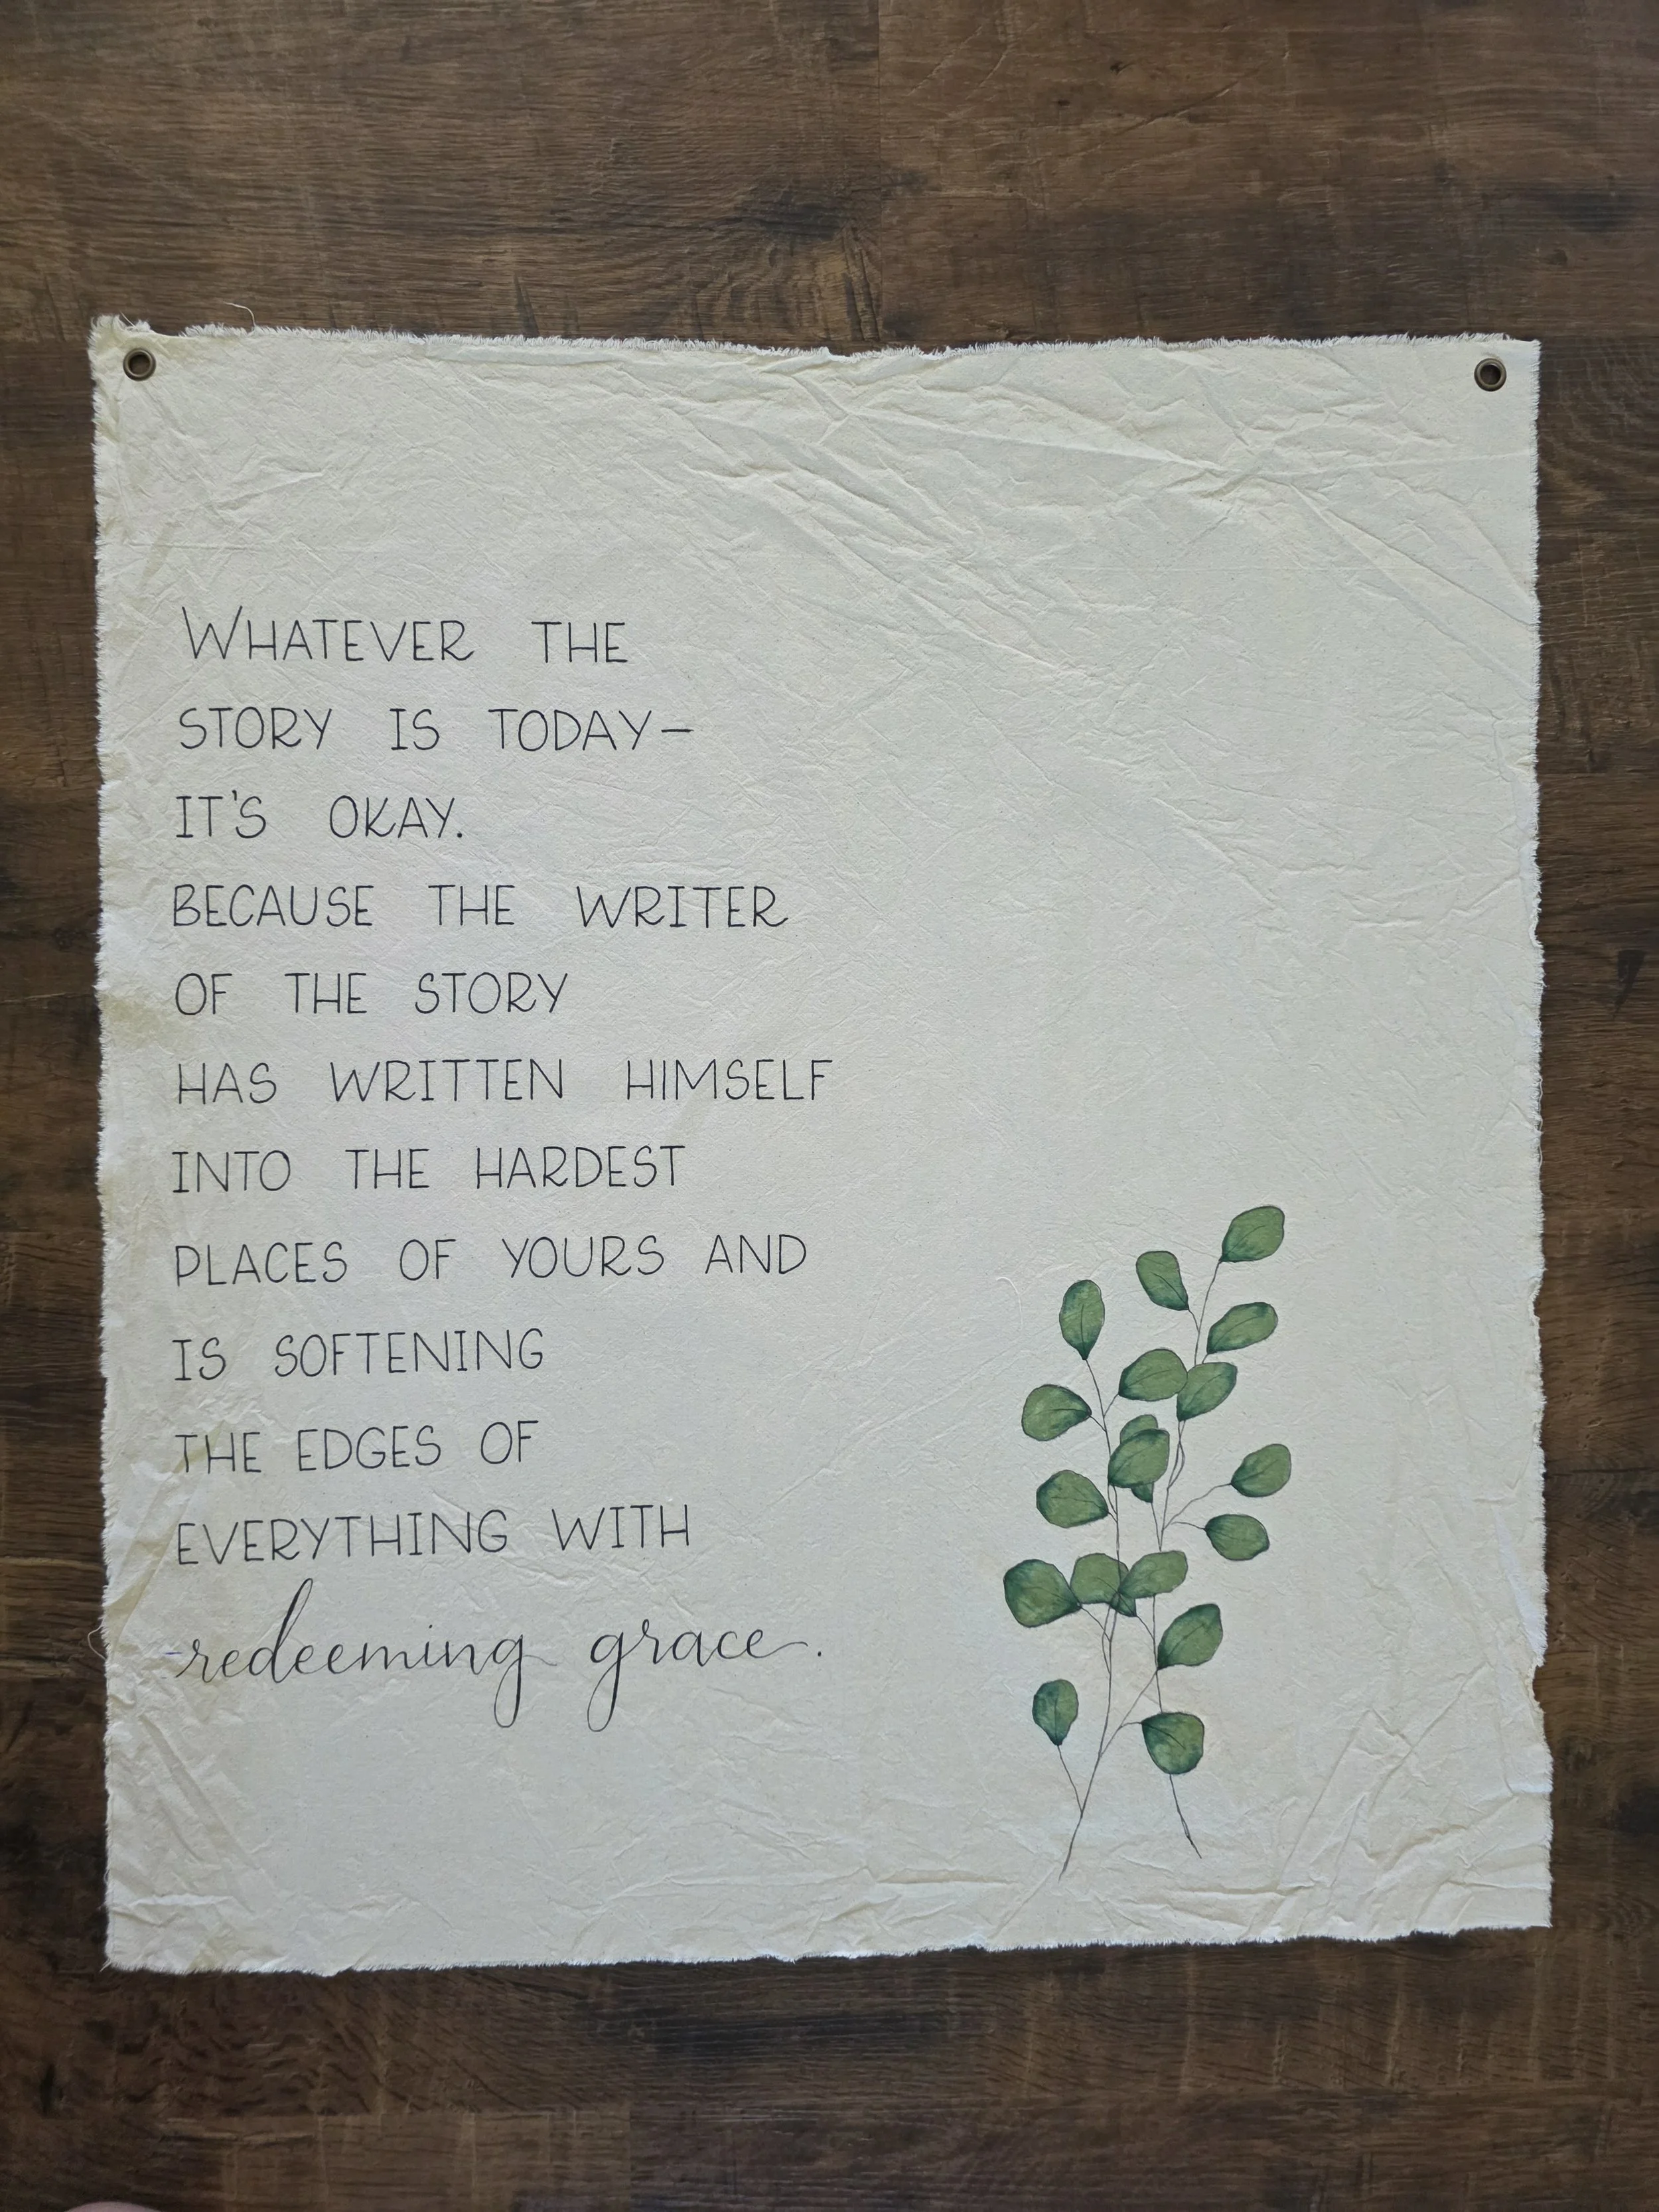 WHATEVER THE
STORY IS TODAY–
IT'S OKAY.
BECAUSE THE WRITER
OF THE STORY
HAS WRITTEN HIMSELF
INTO THE HARDEST
PLACES OF YOURS AND
IS SOFTENING
THE EDGES OF
EVERYTHING WITH
redeeming grace.